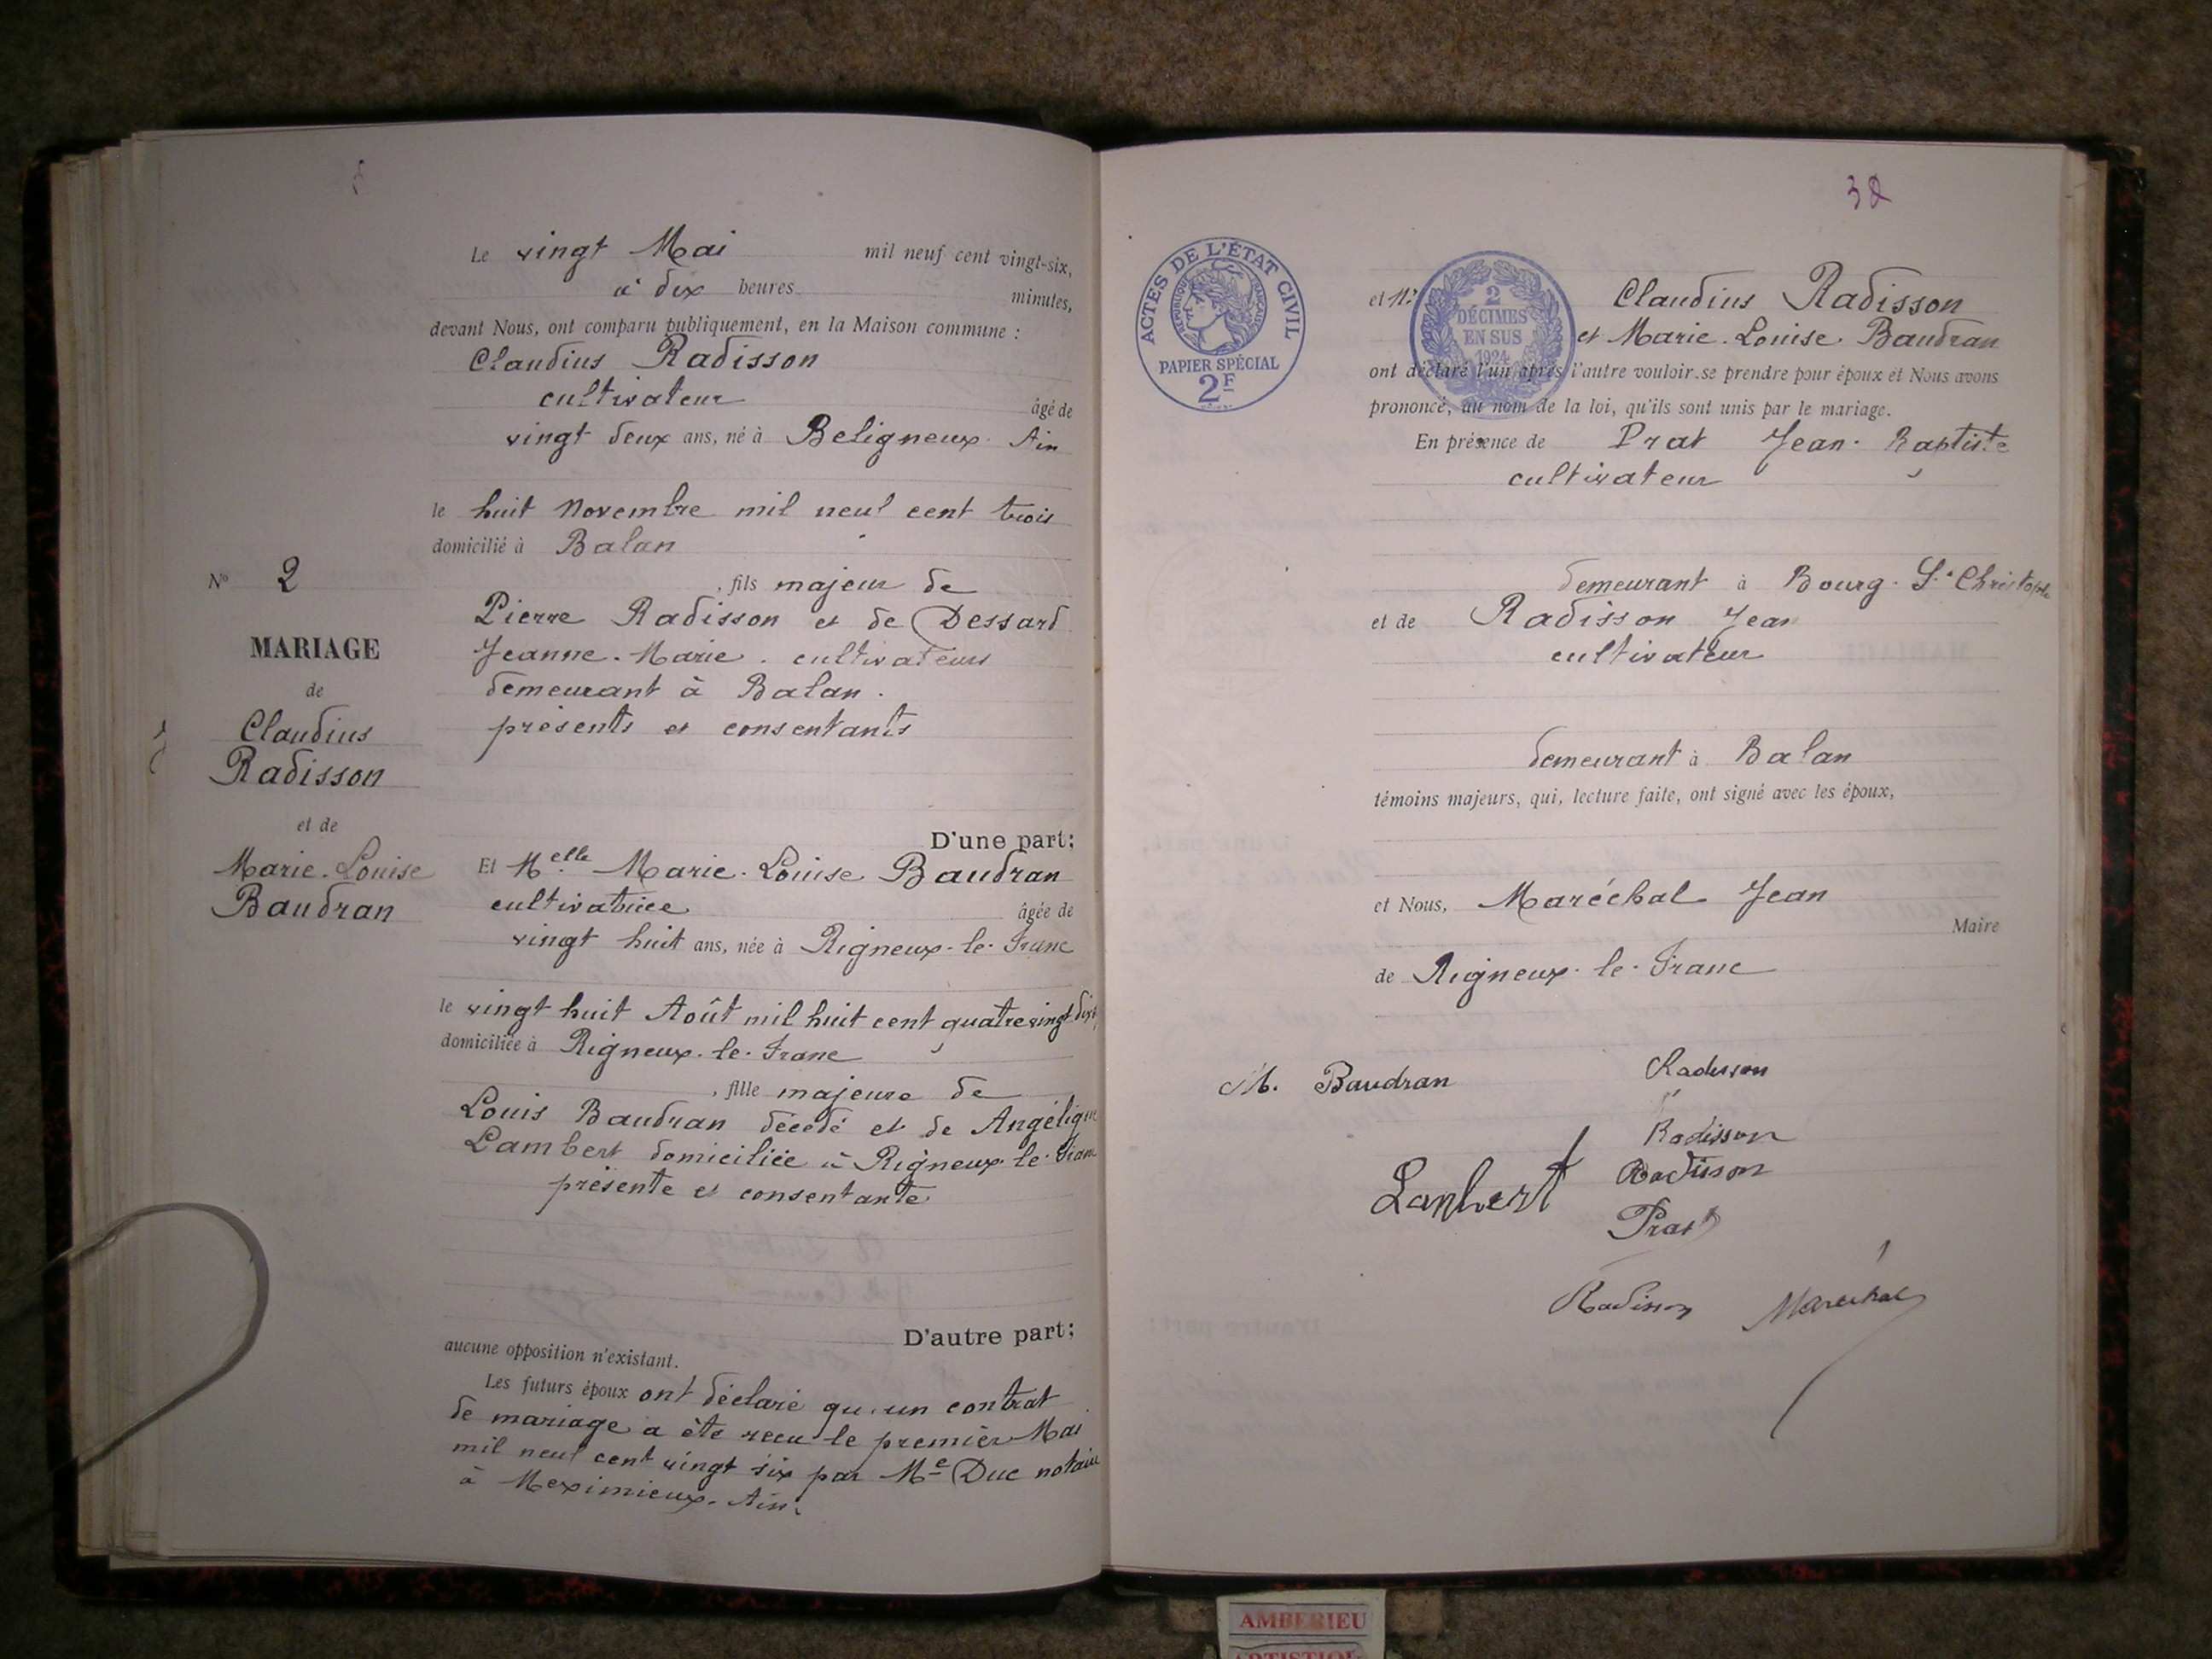 Le vingt Mai mil neuf cent vingt-six,
à dix heures minutes,
devant Nous, ont comparu publiquement, en la Maison commune :
Claudius Radisson
cultivateur âgé de
vingt deux ans, né à Beligneux Ain
le huit Novembre mil neuf cent trois
domicilié à Balan
, fils majeur de
Pierre Radisson et de Dessard
Jeanne-Marie. cultivateurs
demeurant à Balan.
présents et consentants
D'une part;
Et Melle Marie-Louise Baudran
cultivatrice âgée de
vingt huit ans, née à Rigneux-le-Franc
le vingt huit Août mil huit cent quatre vingt dix
domiciliée à Rigneux-le-Franc
, fille majeure de
Louis Baudran décédé et de Angélique
Lambert domiciliée à Rigneux-le-Franc
présente et consentante
D'autre part;
aucune opposition n'existant.
Les futurs époux ont déclaré qu'un contrat
de mariage a été recu le premier Mai
mil neuf cent vingt six par Me Duc notaire
à Meximieux-Ain.
No 2
MARIAGE
de
Claudius
Radisson
et de
Marie-Louise
Baudran
32
ACTES DE L'ÉTAT CIVIL
RÉPUBLIQUE FRANÇAISE
PAPIER SPÉCIAL
2F
2
DÉCIMES
EN SUS
1924
et Claudius Radisson
et Marie-Louise Baudran
ont déclaré l'un après l'autre vouloir se prendre pour époux et Nous avons
prononcé, au nom de la loi, qu'ils sont unis par le mariage.
En présence de Prat Jean-Baptiste
cultivateur
demeurant à Bourg-St Christophe
et de Radisson Jean
cultivateur
demeurant à Balan
témoins majeurs, qui, lecture faite, ont signé avec les époux,
et Nous, Maréchal Jean
Maire
de Rigneux-le-Franc
M. Baudran Radisson
Radisson
Lambert Radisson
Prat
Radisson Maréchal
AMBERIEU